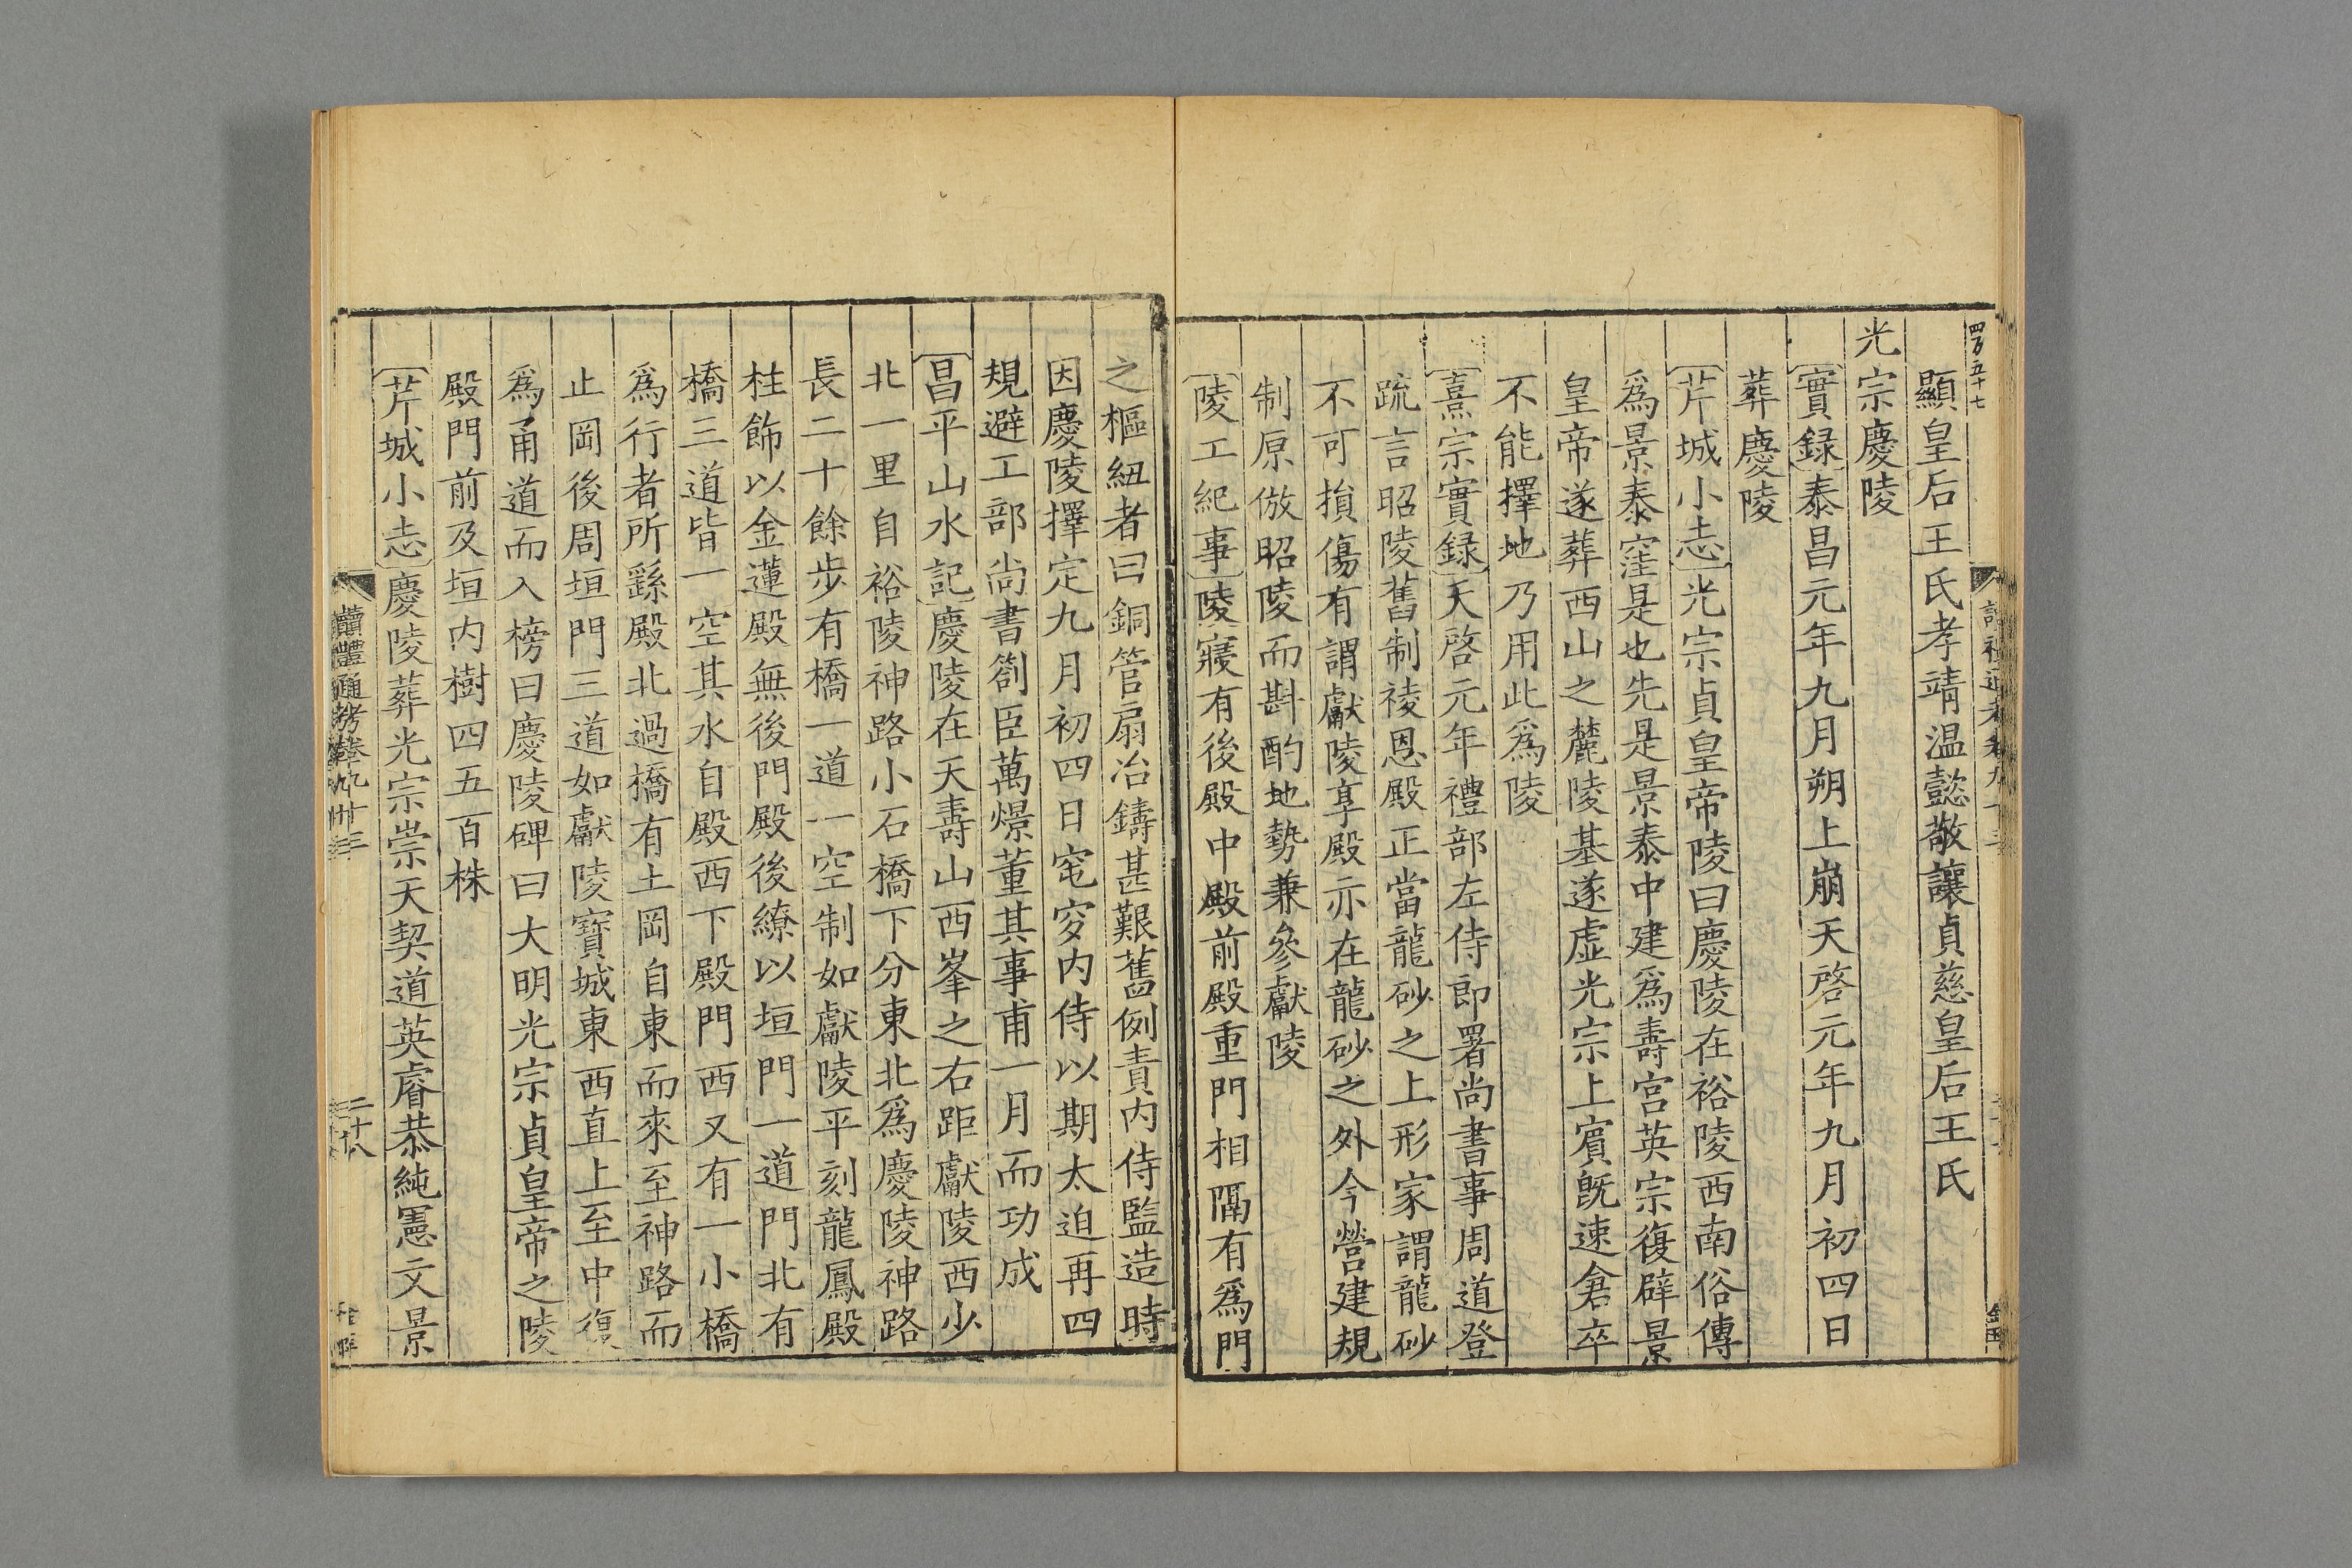 顯皇后王氏孝靖温懿敬讓貞慈皇后王氏
光宗慶陵
實録泰昌元年九月朔上崩天啓元年九月初四日
葬慶陵
芹城小志光宗貞皇帝陵曰慶陵在裕陵西南俗傳
爲景泰窪是也先是景泰中建爲壽宮英宗復辟景
皇帝遂葬西山之麓陵基遂虚光宗上賓旣速倉卒
不能擇地乃用此爲陵
熹宗實録天啓元年禮部左侍郎署尚書事周道登
疏言昭陵舊制祾恩殿正當龍砂之上形家謂龍砂
不可損傷有謂獻陵享殿亦在龍砂之外今營建規
制原倣昭陵而斟酌地勢兼參獻陵
陵工紀事陵寢有後殿中殿前殿重門相隔有爲門
之樞紐者曰銅管扇冶鑄甚艱舊例責内侍監造時
因慶陵擇定九月初四日窀穸内侍以期太迫再四
規避工部尚書劄臣萬爆董其事甫一月而功成
昌平山水記慶陵在天壽山西峯之右距獻陵西少
北一里自裕陵神路小石橋下分東北爲慶陵神路
長二十餘步有橋一道一空制如獻陵平刻龍鳳殿
柱飾以金蓮殿無後門殿後繚以垣門一道門北有
橋三道皆一空其水自殿西下殿門西又有一小橋
爲行者所繇殿北過橋有土岡自東而來至神路而
止岡後周垣門三道如獻陵寶城東西直上至中復
爲甬道而入榜曰慶陵碑曰大明光宗貞皇帝之陵
殿門前及垣内樹四五百株
芹城小志慶陵葬光宗崇天契道英睿恭純憲文景
讀禮通考卷九十三
二十八